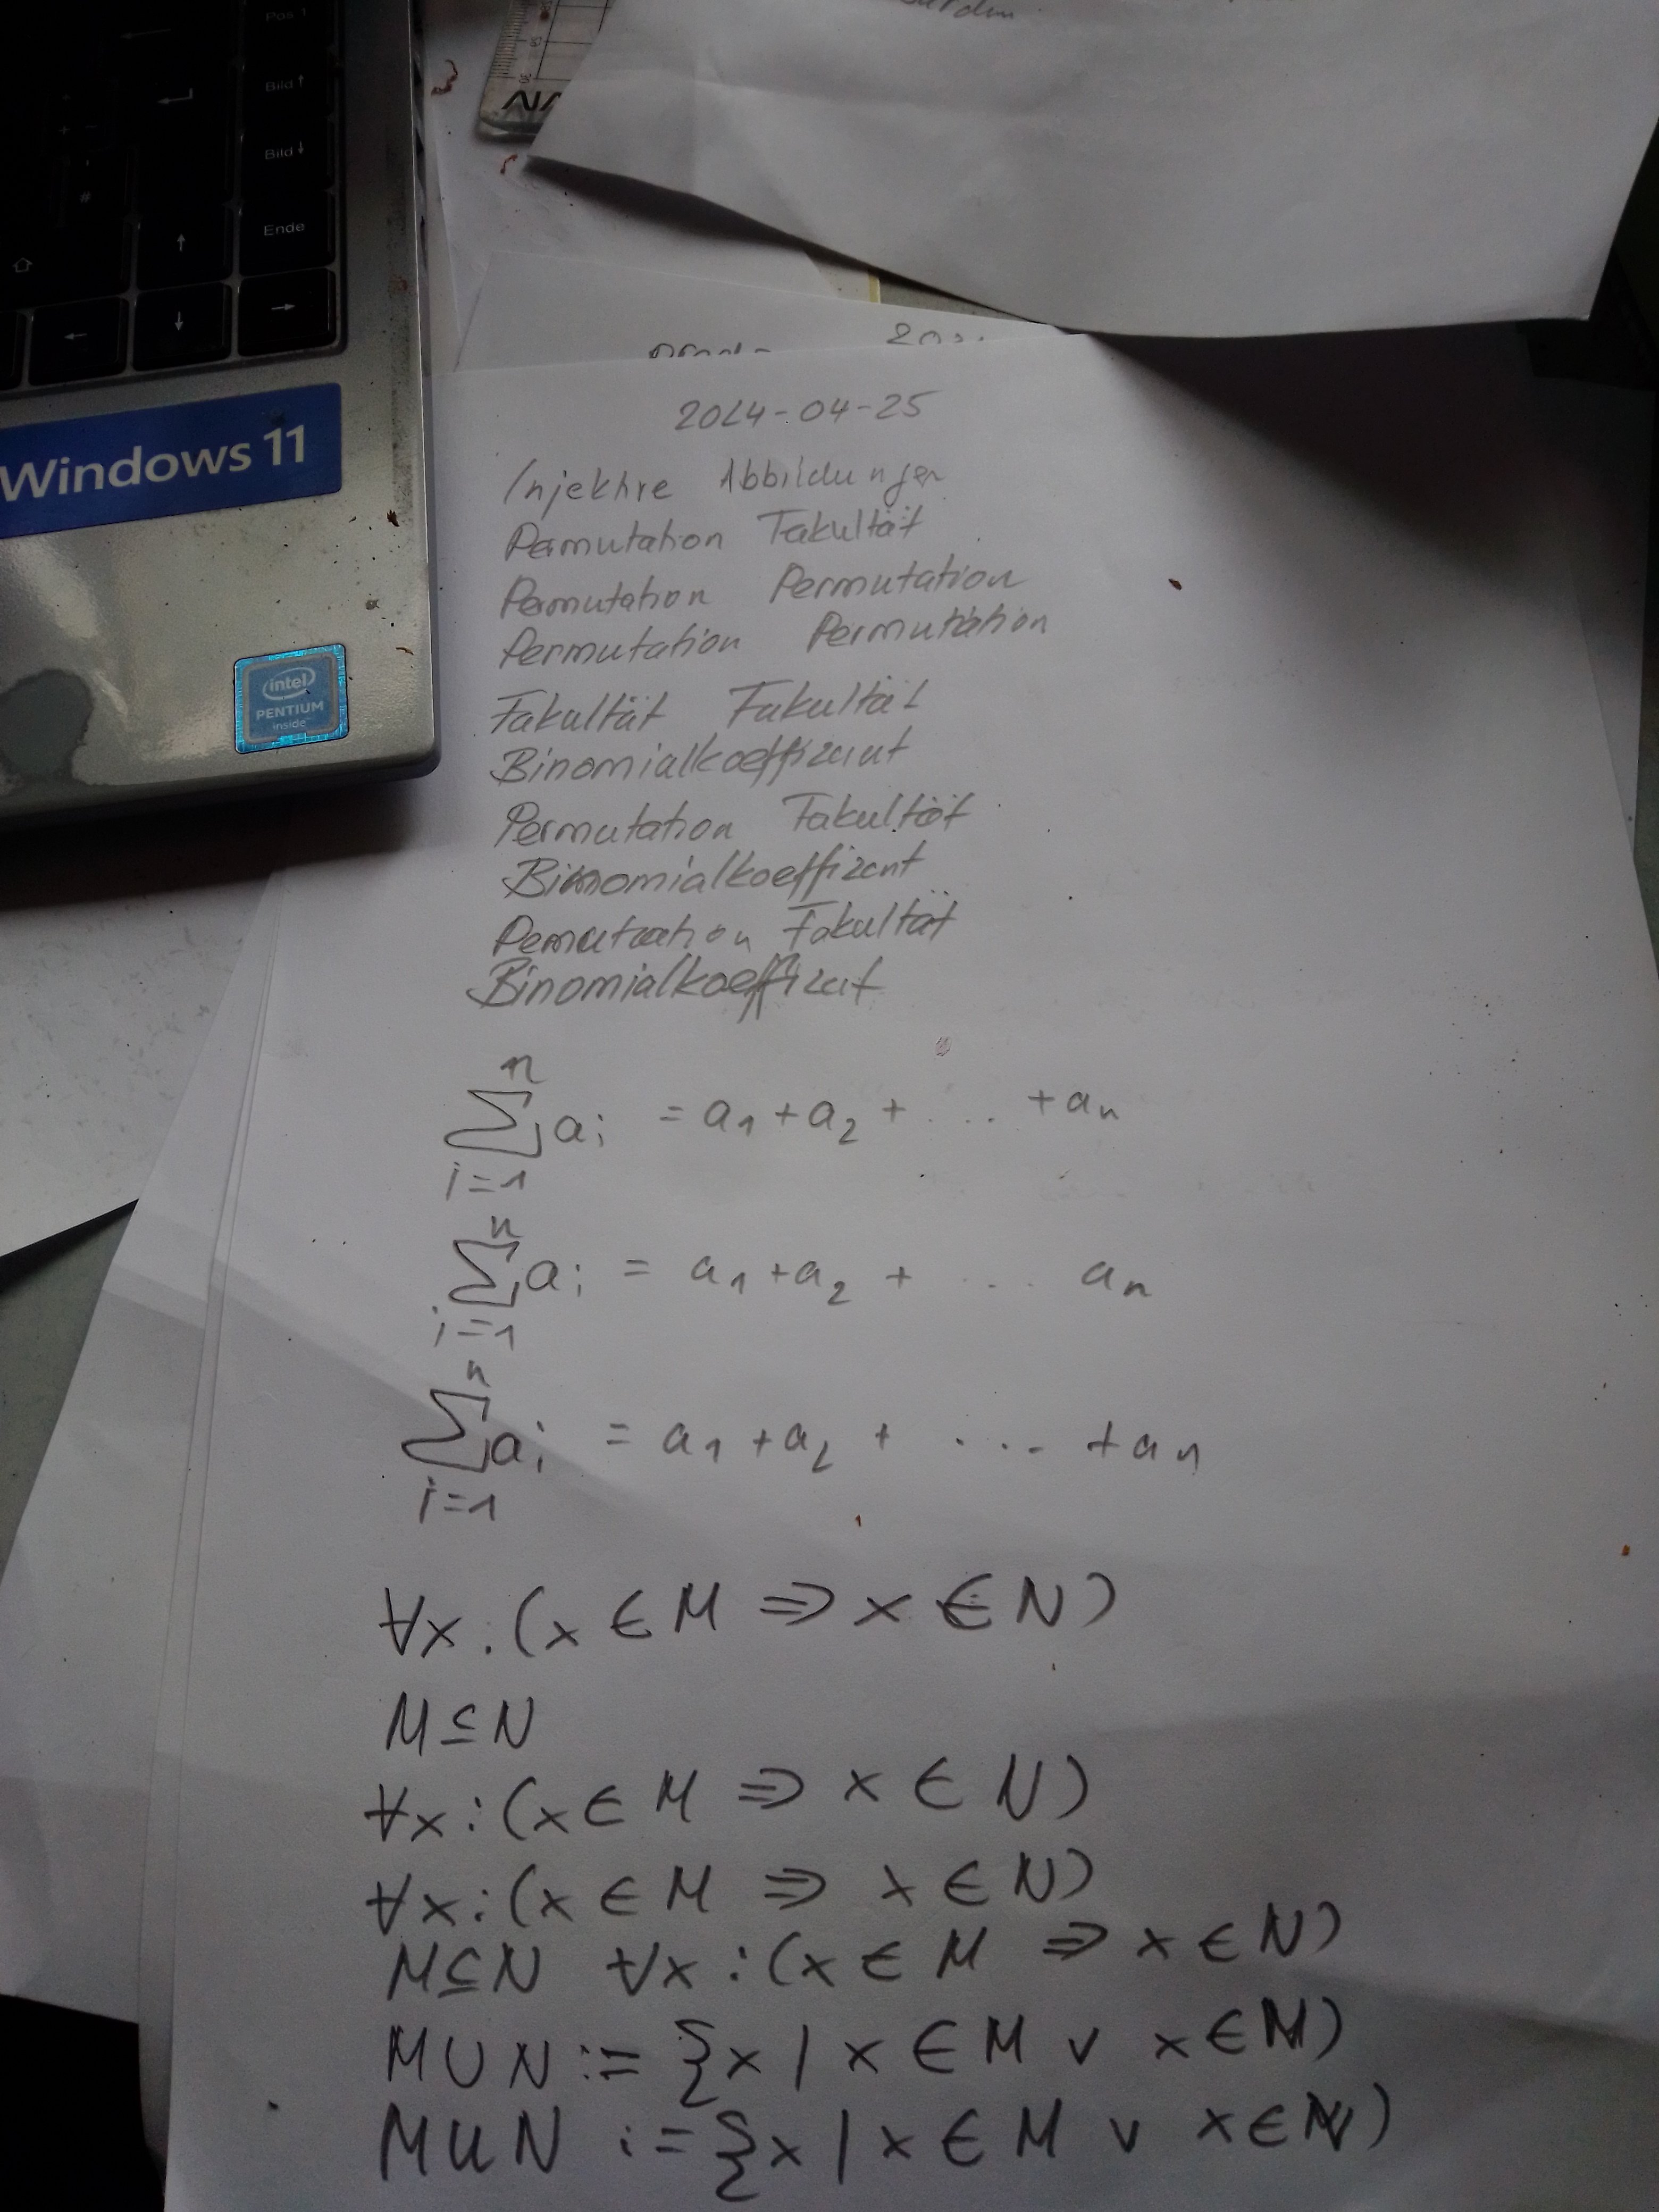 Pos 1
Bild ↑
Bild ↓
+
#
Ende
Windows 11
intel
PENTIUM
inside
2024-04-25
Injektive Abbildungen
Permutation Fakultät
Permutation Permutation
Permutation Permutation
Fakultät Fakultät
Binomialkoeffizient
Permutation Fakultät
Binomialkoeffizient
Permutation Fakultät
Binomialkoeffizient
n
∑ ai = a1 + a2 + .... + an
i=1
n
∑ ai = a1 + a2 + ... an
i=1
n
∑ ai = a1 + a2 + .... + an
i=1
∀x:(x ∈ M ⇒ x ∈ N)
M ⊆ N
∀x:(x ∈ M ⇒ x ∈ N)
∀x:(x ∈ M ⇒ x ∈ N)
M ⊆ N ∀x:(x ∈ M ⇒ x ∈ N)
M ∪ N := {x | x ∈ M ∨ x ∈ N)
M ∪ N := {x | x ∈ M ∨ x ∈ N)